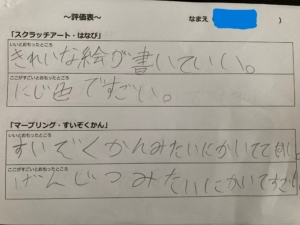 ～評価表～
なまえ(
「スクラッチアート・はなび」
いいとおもったところ
きれいな絵が書いていい。
ここがすごいとおもったところ
にじ色ですごい。
「マーブリング・すいぞくかん」
いいとおもったところ
すいぞくかんみたいにかいてて
ここがすごいとおもったところ
げんじつみたいにかいてすごい